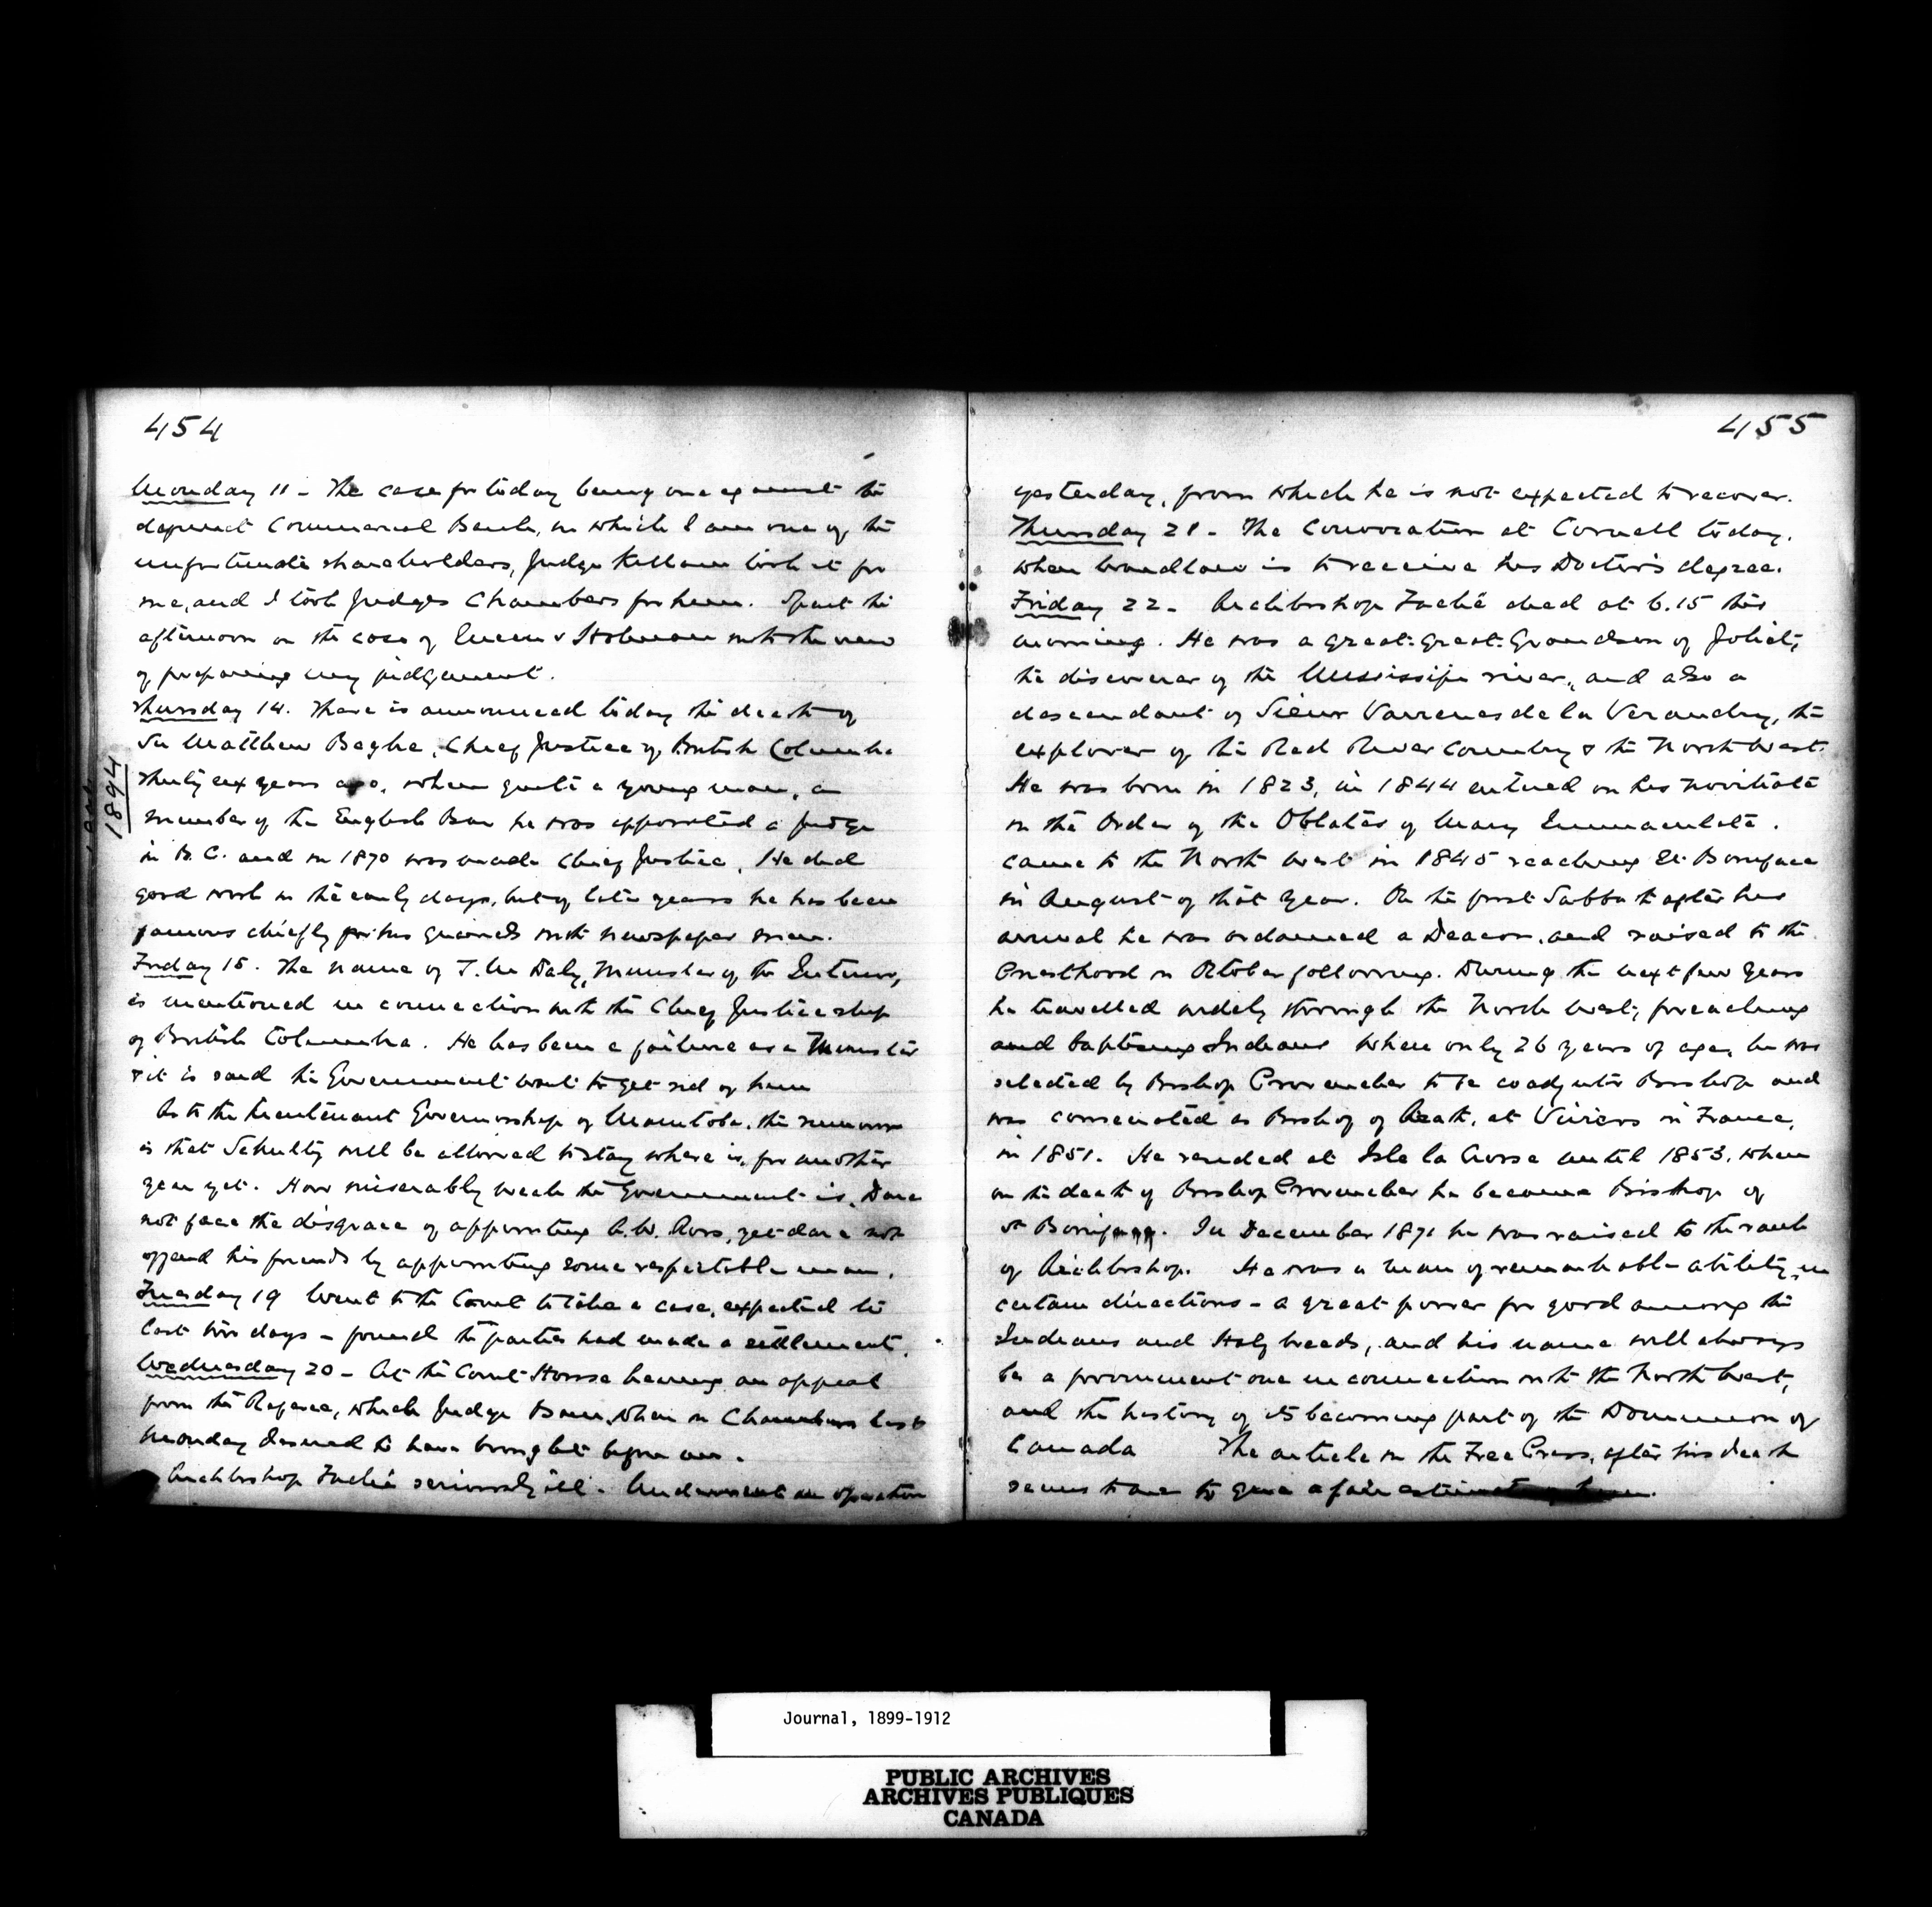 454
Monday 11 - The case for today being one against the
defunct Commercial Bank, in which I am one of the
unfortunate shareholders, Judge Killam took it for
me, and I took Judges Chambers for him. Spent the
afternoon on the case of Queen v Holman with the view
of preparing my judgment.
Thursday 14. There is announced today the death of
Sir Matthew Begbie, Chief Justice of British Columbia
Thirty six years ago, when quite a young man, a
member of the English Bar he was appointed a judge
in B.C. and in 1870 was made Chief Justice. He did
good work in the early days, but of late years he has been
famous chiefly for his quarrels with newspaper men.
Friday 15. The name of T. M Daly, Minister of the Interior,
is mentioned in connection with the Chief Justiceship
of British Columbia. He has been a failure as a Minister
& it is said the Government want to get rid of him
As to the Lieutenant Governorship of Manitoba, the rumour
is that Schultz will be allowed to stay where is, for another
year yet. How miserably weak the Government is. Dare
not face the disgrace of appointing A. W. Ross, yet dare not
offend his friends by appointing some respectable man.
Tuesday 19 Went to the Court to take a case, expected to
last two days - found the parties had made a settlement.
Wednesday 20 - At the Court House hearing an appeal
from the Referee, which Judge Bain, when in Chambers last
Monday desired to have brought before me.
Archbishop Taché seriously ill. Underwent an operation
1894
455
yesterday, from which he is not expected to recover.
Thursday 21 - The Convocation at Cornell today,
when is to receive his Doctor's degree.
Friday 22 - Archbishop Taché died at 6.15 this
morning. He was a great-great-Grandson of Joliet,
the discoverer of the Mississipi river, and also a
descendant of Sieur Varrenes de la Verandry, the
explorer of the Red River Country & the North West.
He was born in 1823, in 1844 entered on his novitiate
in the Order of the Oblates of Mary Immaculate.
came to the North West in 1845 reaching St. Boniface
in August of that year. On the first Sabbath after his
arrival he was ordained a Deacon, and raised to the
Priesthood in October following. During the next few years
he travelled widely through the North West, preaching
and baptising Indians When only 26 years of age, he was
selected by Bishop Provencher to be coadjutor Bishop and
was consecrated as Bishop of Arath, at Viviers in France,
in 1851. He resided at Isle la Crosse until 1853, when
on the death of Bishop Provencher he became Bishop of
St Boniface. In December 1871 he was raised to the rank
of Archbishop. He was a man of remarkable ability, in
certain directions - a great power for good among the
Indians and Half breeds, and his name will always
be a prominent one in connection with the North West,
and the history of its becoming part of the Dominion of
Canada The article in the Free Press, after his death
seems to me to give a fair estimate of him.
Journal, 1899-1912
PUBLIC ARCHIVES
ARCHIVES PUBLIQUES
CANADA